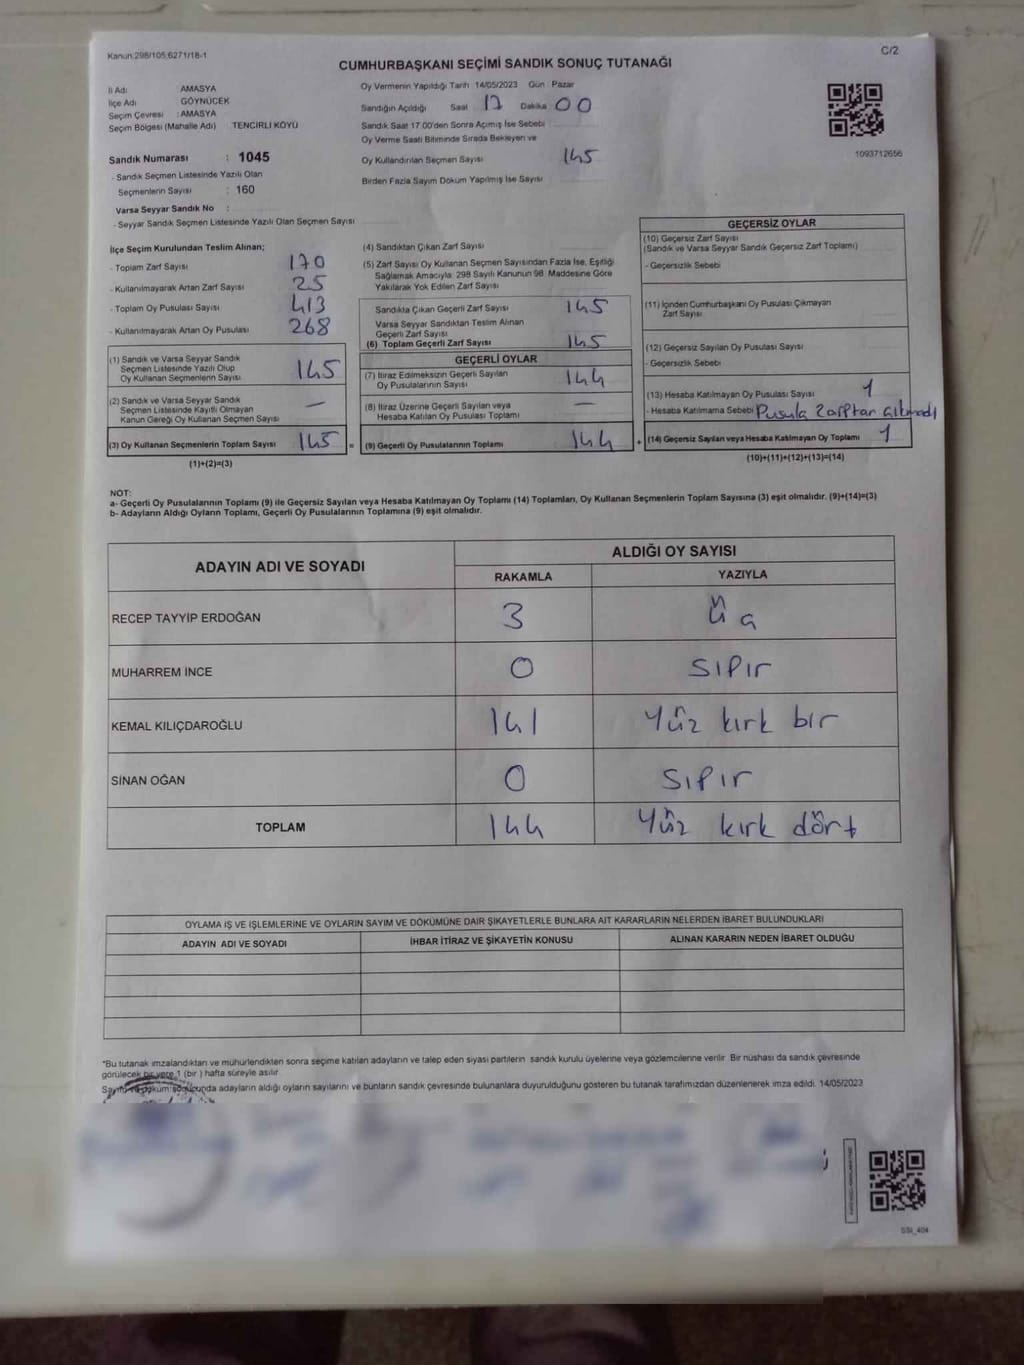 Kanun:298/105,6271/18-1
C/2
CUMHURBAŞKANI SEÇİMİ SANDIK SONUÇ TUTANAĞI
İl Adı AMASYA
İlçe Adı GÖYNÜCEK
Seçim Çevresi : AMASYA
Seçim Bölgesi (Mahalle Adı) TENCİRLİ KÖYÜ
Oy Vermenin Yapıldığı Tarih 14/05/2023 Gün Pazar
Sandığın Açıldığı Saat 17 Dakika 00
Sandık Saat 17.00'den Sonra Açımış İse Sebebi
Oy Verme Saati Bitiminde Sırada Bekleyen ve
Oy Kullandırılan Seçmen Sayısı 145
Birden Fazla Sayım Döküm Yapılmış İse Sayısı
1093712656
Sandık Numarası : 1045
- Sandık Seçmen Listesinde Yazılı Olan
Seçmenlerin Sayısı : 160
Varsa Seyyar Sandık No :
- Seyyar Sandık Seçmen Listesinde Yazılı Olan Seçmen Sayısı
İlçe Seçim Kurulundan Teslim Alınan;
- Toplam Zarf Sayısı 170
- Kullanılmayarak Artan Zarf Sayısı 25
- Toplam Oy Pusulası Sayısı 413
- Kullanılmayarak Artan Oy Pusulası 268
(1) Sandık ve Varsa Seyyar Sandık
Seçmen Listesinde Yazılı Olup
Oy Kullanan Seçmenlerin Sayısı 145
(2) Sandık ve Varsa Seyyar Sandık
Seçmen Listesinde Kayıtlı Olmayan
Kanun Gereği Oy Kullanan Seçmen Sayısı —
(3) Oy Kullanan Seçmenlerin Toplam Sayısı 145 =
(1)+(2)=(3)
(4) Sandıktan Çıkan Zarf Sayısı
(5) Zarf Sayısı Oy Kullanan Seçmen Sayısından Fazla İse, Eşitliği
Sağlamak Amacıyla 298 Sayılı Kanunun 98. Maddesine Göre
Yakılarak Yok Edilen Zarf Sayısı
Sandıkta Çıkan Geçerli Zarf Sayısı 145
Varsa Seyyar Sandıktan Teslim Alınan
Geçerli Zarf Sayısı
(6) Toplam Geçerli Zarf Sayısı 145
GEÇERLİ OYLAR
(7) İtiraz Edilmeksizin Geçerli Sayılan
Oy Pusulalarının Sayısı 144
(8) İtiraz Üzerine Geçerli Sayılan veya
Hesaba Katılan Oy Pusulası Toplamı —
(9) Geçerli Oy Pusulalarının Toplamı 144 +
GEÇERSİZ OYLAR
(10) Geçersiz Zarf Sayısı
(Sandık ve Varsa Seyyar Sandık Geçersiz Zarf Toplamı)
- Geçersizlik Sebebi
(11) İçinden Cumhurbaşkanı Oy Pusulası Çıkmayan
Zarf Sayısı
(12) Geçersiz Sayılan Oy Pusulası Sayısı
- Geçersizlik Sebebi
(13) Hesaba Katılmayan Oy Pusulası Sayısı 1
- Hesaba Katılmama Sebebi Pusula Zarftan çıkmadı
(14) Geçersiz Sayılan veya Hesaba Katılmayan Oy Toplamı 1
(10)+(11)+(12)+(13)=(14)
NOT:
a- Geçerli Oy Pusulalarının Toplamı (9) ile Geçersiz Sayılan veya Hesaba Katılmayan Oy Toplamı (14) Toplamları, Oy Kullanan Seçmenlerin Toplam Sayısına (3) eşit olmalıdır. (9)+(14)=(3)
b- Adayların Aldığı Oyların Toplamı, Geçerli Oy Pusulalarının Toplamına (9) eşit olmalıdır.
ADAYIN ADI VE SOYADI ALDIĞI OY SAYISI
RAKAMLA YAZIYLA
RECEP TAYYİP ERDOĞAN 3 Üç
MUHARREM İNCE 0 sıfır
KEMAL KILIÇDAROĞLU 141 Yüz kırk bir
SİNAN OĞAN 0 sıfır
TOPLAM 144 Yüz kırk dört
OYLAMA İŞ VE İŞLEMLERİNE VE OYLARIN SAYIM VE DÖKÜMÜNE DAİR ŞİKAYETLERLE BUNLARA AİT KARARLARIN NELERDEN İBARET BULUNDUKLARI
ADAYIN ADI VE SOYADI İHBAR İTİRAZ VE ŞİKAYETİN KONUSU ALINAN KARARIN NEDEN İBARET OLDUĞU
*Bu tutanak imzalandıktan ve mühürlendikten sonra seçime katılan adayların ve talep eden siyasi partilerin sandık kurulu üyelerine veya gözlemcilerine verilir. Bir nüshası da sandık çevresinde
görülecek bir yere 1 (bir ) hafta süreyle asılır.
Sayım ve döküm sonucunda adayların aldığı oyların sayılarını ve bunların sandık çevresinde bulunanlara duyurulduğunu gösteren bu tutanak tarafımızdan düzenlenerek imza edildi. 14/05/2023
SSI_404